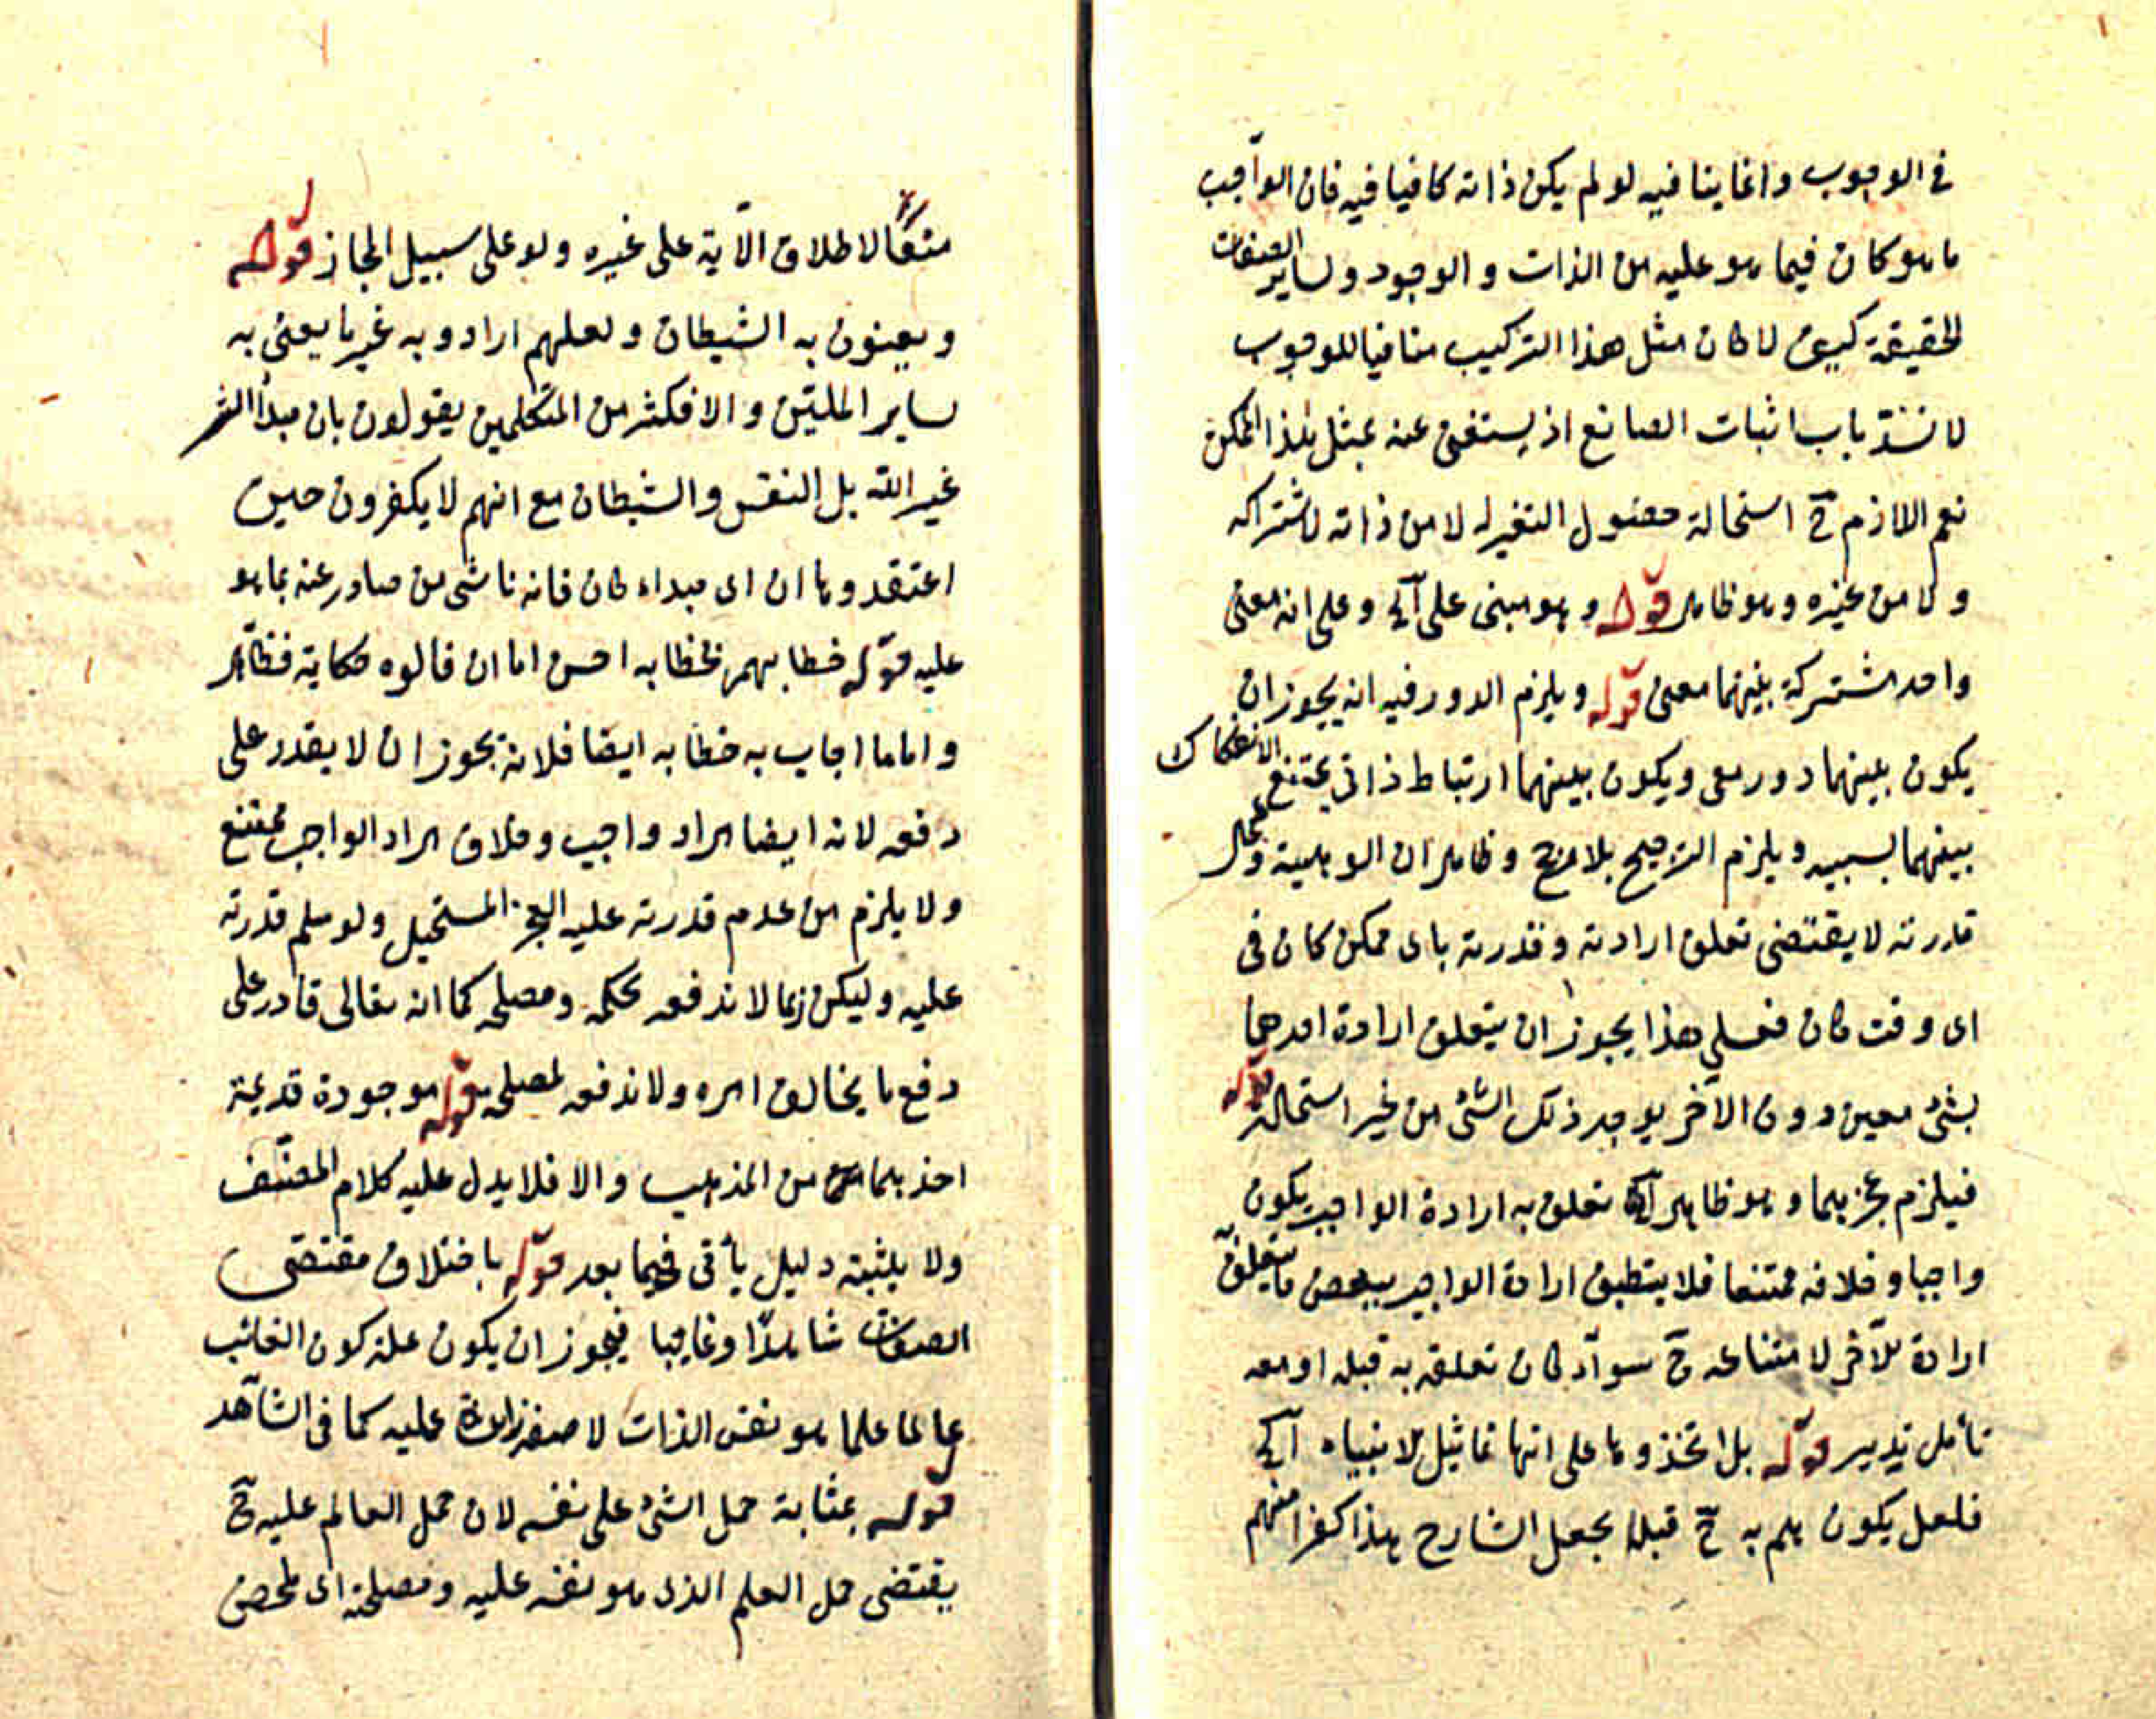 في الوجوب وانما ينافيه لو لم يكن ذاته كافيا فيه فان الواجب
ما هو كان فيما هو عليه من الذات والوجود وساير الصفات
الحقيقة كيف لا كان مثل هذا التركيب منافيا للوجوب
لانسد باب اثبات الصانع اذ يستغنى عنه بمثل هذا الممكن
نعم اللازم ح استحالة حصول التغير له لا من ذاته لاشتراكه
ولا من غيره وهو ظاهر قوله وهو مبنى على آه وعلى انه معنى
واحد مشتركة بينهما معنى قوله ويلزم الدور فيه انه يجوز ان
يكون بينهما دور معى ويكون بينهما ارتباط ذاتى يمتنع الانفكاك
بينهما بسببه ويلزم الترجيح بلا مرجح وظاهر ان الوهية وكمال
قدرته لا يقتضى تعلق ارادته وقدرته باى ممكن كان فى
اى وقت كان فعلى هذا يجوز ان يتعلق ارادة احدهما
بشئ معين دون الآخر يوجد ذلك الشئ من غير استحالة قوله
فيلزم عجزهما وهو ظاهر تعلق به ارادة الواجب يكون
واجبا وخلافه ممتنعا فلا ينطبق ارادة الواجب ببعض ما يتعلق
ارادة للآخر لامتناعه ح سواء كان تعلقه به قبله او معه
تأمل تدبر قوله بل اتخذوها على انها تماثيل الانبياء آه
فلعل يكون لهم به ح قبلها بجعل الشارح هذا كفرا منهم
متعا لاطلاق الآية على غيره ولو على سبيل المجاز قوله
ويعنون به الشيطان ولعلهم ارادو به غير ما يعنى به
ساير المليين والا فكثير من المتكلمين يقولون بان مبدأ الشر
غير الله بل النفس والشيطان مع انهم لا يكفرون حين
اعتقدوها ان اى مبداء كان فانه ناشى من صادر عنه بما هو
عليه قوله خطابهم بخطابه احسن اما ان قالوه حكاية فظاهر
واما ما اجاب به خطابه ايضا فلانه يجوز ان لا يقدر على
دفعه لانه ايضا مراد واجب وخلاف مراد الواجب ممتنع
ولا يلزم من عدم قدرته عليه العجز المستحيل ولو سلم قدرته
عليه وليكن ربما لا ندفعه لحكمة ومصلحة كما انه تعالى قادر على
دفع ما يخالف امره ولا ندفعه لمصلحة قوله موجودة قديمة
اخذ بهما من المذهب والا فلا يدل عليه كلام المصنف
ولا يثبته دليل يأتى فيما بعد قوله باختلاف مقتضى
الصفات شاهدا وغايبا فيجوز ان يكون علة كون الغائب
عالما علما هو نفس الذات لا صفة زائدة عليه كما فى الشاهد
قوله بمثابة حمل الشئ على نفسه لان حمل العالم عليه ح
يقتضى حمل العلم الذى هو نفسه عليه ومصلحة اى لمحض